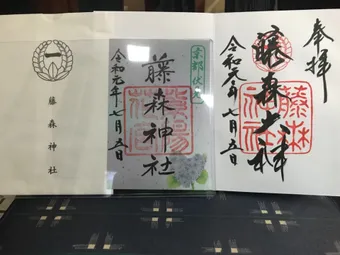 一
藤森神社
京都 伏
藤森神社
令和元年七月五日
奉拝
藤森大神
藤森
神社
令和元年七月五日